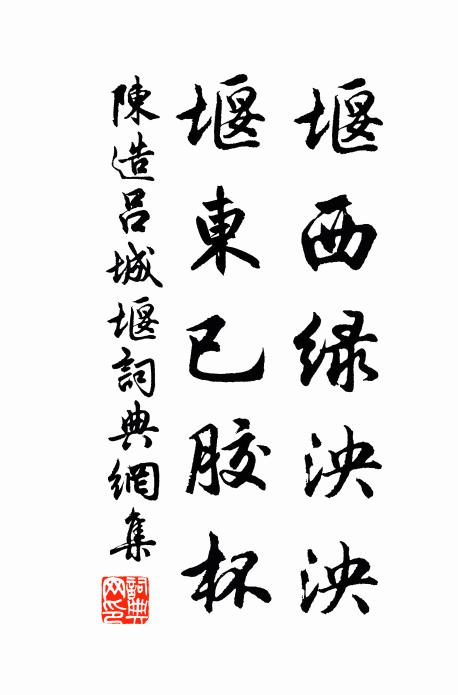 堰西緑泱泱
堰東已膠杯
陳造呂城堰詞典網集
詞典網印